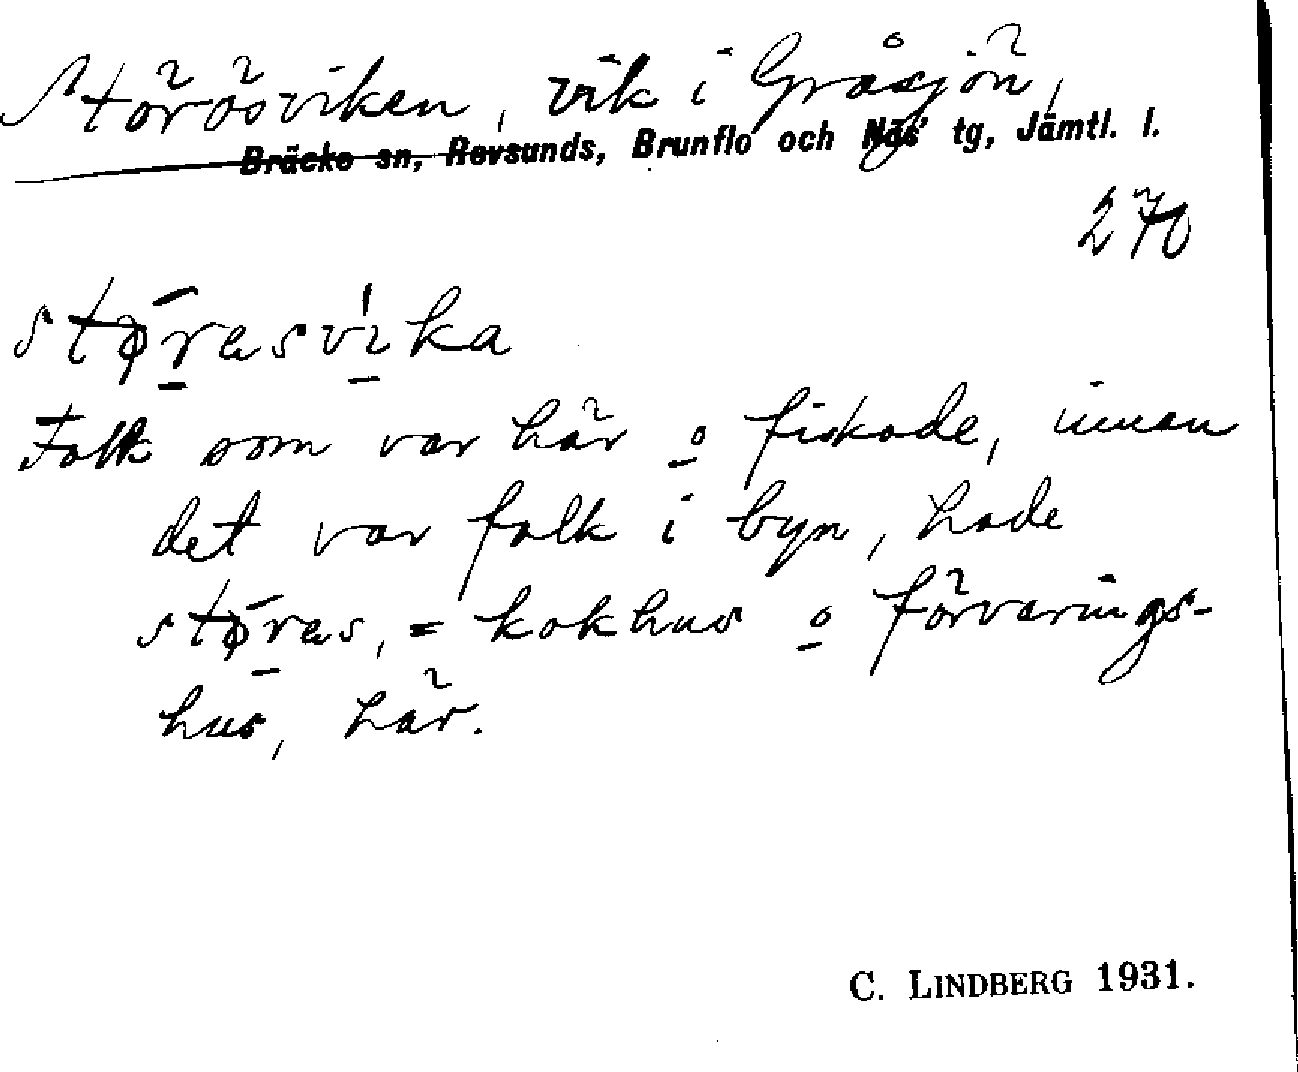 Störösviken, vik i Gråsjön,
Bräcke sn, Revsunds, Brunflo och Näs tg, Jämtl. l.
270
støresvika
Folk som var här o fiskade, innan
det var folk i byn, hade
støres, = kokhus o förvarings-
hus, här.
C. LINDBERG 1931.